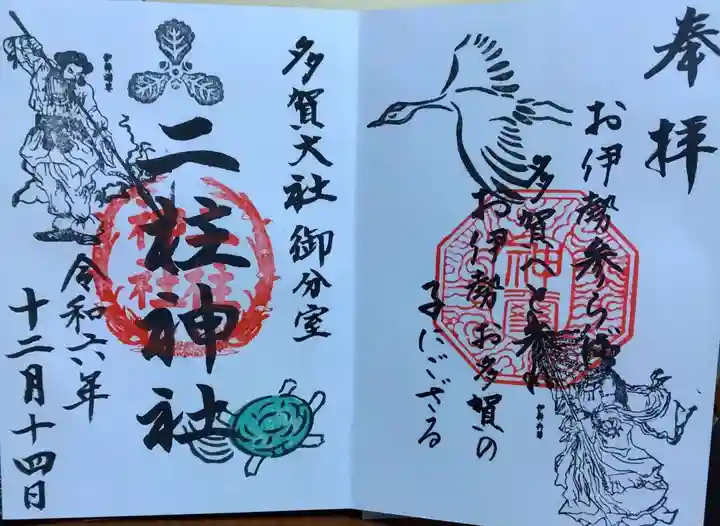 奉拝
お伊勢参らば
多賀へと参れ
お伊勢お多賀の
子にござる
多賀大社御分室
二柱神社
令和六年
十二月十四日